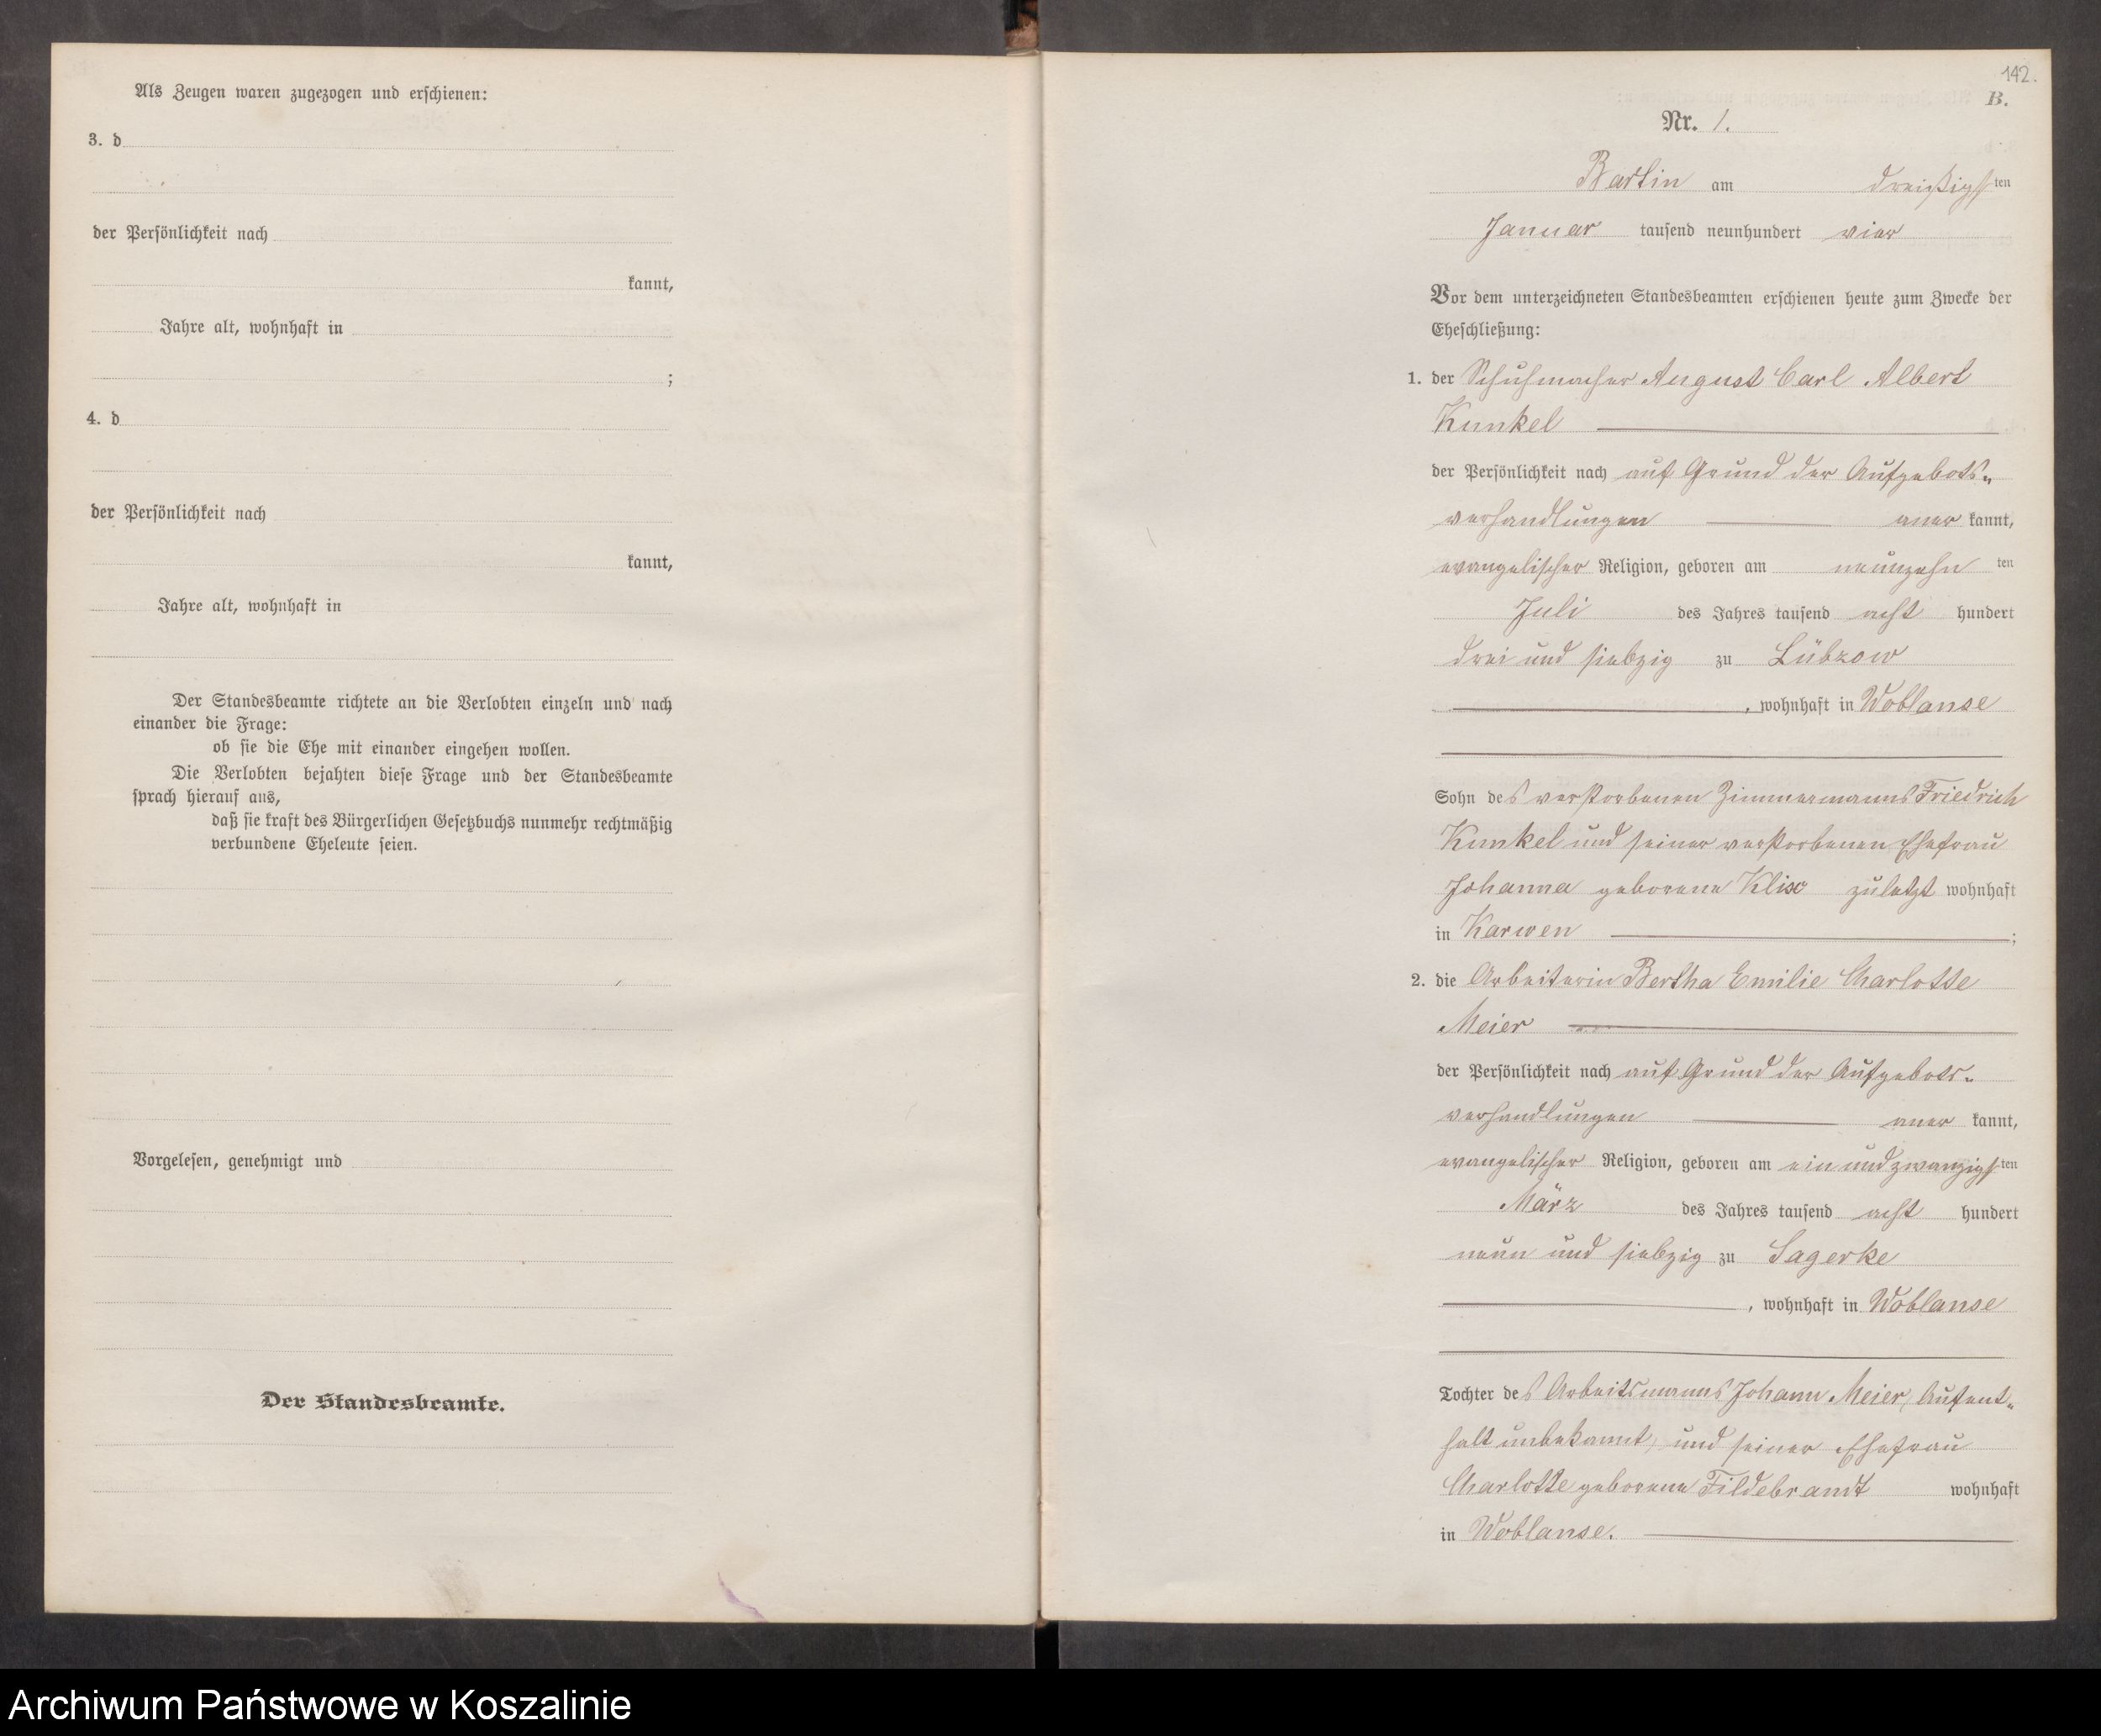 Als Zeugen waren zugezogen und erschienen:
3. d
der Persönlichkeit nach
kannt,
Jahre alt, wohnhaft in
;
4. d
der Persönlichkeit nach
kannt,
Jahre alt, wohnhaft in
Der Standesbeamte richtete an die Verlobten einzeln und nach
einander die Frage:
ob sie die Ehe mit einander eingehen wollen.
Die Verlobten bejahten diese Frage und der Standesbeamte
sprach hierauf aus,
daß sie kraft des Bürgerlichen Gesetzbuchs nunmehr rechtmäßig
verbundene Eheleute seien.
Vorgelesen, genehmigt und
Der Standesbeamte.
142.
B.
Nr. 1.
Bartin am dreißigsten
Januar tausend neunhundert vier
Vor dem unterzeichneten Standesbeamten erschienen heute zum Zwecke der
Eheschließung:
1. der Schuhmacher August Carl Albert
Kunkel
der Persönlichkeit nach auf Grund der Aufgebots-
verhandlungen aner kannt,
evangelischer Religion, geboren am neunzehn ten
Juli des Jahres tausend acht hundert
drei und siebzig zu Lübzow
, wohnhaft in Woblanse
Sohn des verstorbenen Zimmermanns Friedrich
Kunkel und seiner verstorbenen Ehefrau
Johanna geborene Klix zuletzt wohnhaft
in Karwen ;
2. die Arbeiterin Bertha Emilie Charlotte
Meier
der Persönlichkeit nach auf Grund der Aufgebots-
verhandlungen aner kannt,
evangelischer Religion, geboren am ein und zwanzigsten
März des Jahres tausend acht hundert
neun und siebzig zu Sagerke
, wohnhaft in Woblanse
Tochter des Arbeitsmanns Johann Meier, Aufent-
halt unbekannt, und seiner Ehefrau
Charlotte geborene Fildebrandt wohnhaft
in Woblanse.
Archiwum Państwowe w Koszalinie